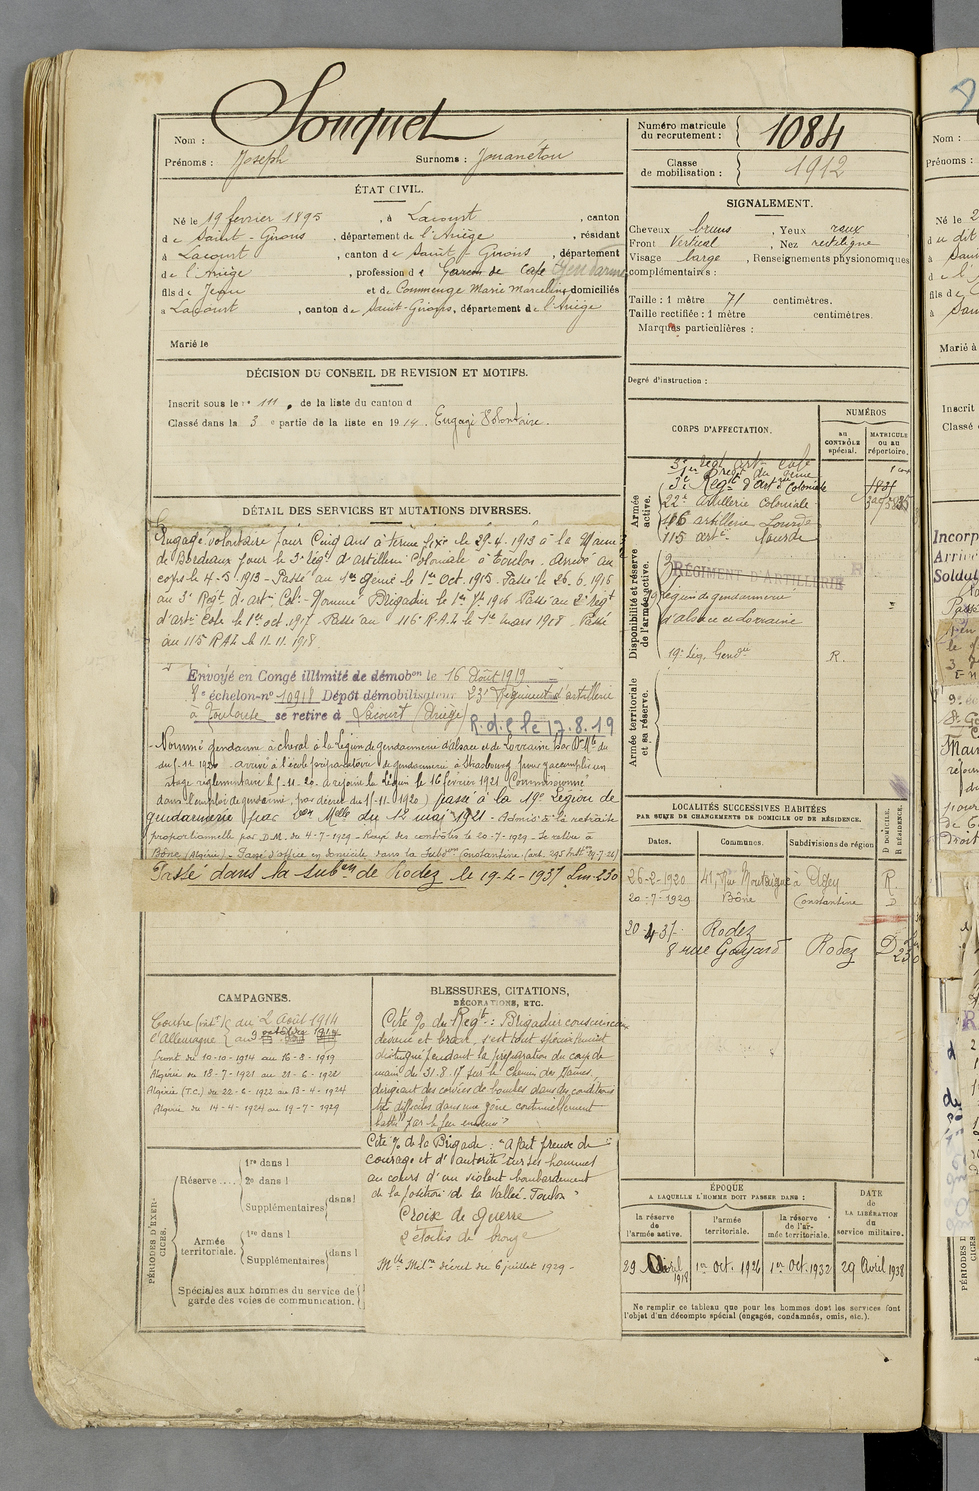 Nom : Souquet
Prénoms : Joseph Surnoms : Jouaneton
Numéro matricule du recrutement : 1084
Classe de mobilisation : 1912
ÉTAT CIVIL.
Né le 19 février 1895, à Lacourt, canton
de Saint-Girons, département de l'Ariège, résidant
à Lacourt, canton de Saint-Girons, département
de l'Ariège, profession de Garçon de café Gendarme
fils de Jean et de Commenge Marie Marceline domiciliés
à Lacourt, canton de Saint-Girons, département de l'Ariège
Marié le
SIGNALEMENT.
Cheveux bruns, Yeux roux
Front Vertical, Nez rectiligne
Visage large, Renseignements physionomiques
complémentaires :
Taille : 1 mètre 71 centimètres.
Taille rectifiée : 1 mètre centimètres.
Marques particulières :
Degré d'instruction :
DÉCISION DU CONSEIL DE REVISION ET MOTIFS.
Inscrit sous le n° 111, de la liste du canton d
Classé dans la 3e partie de la liste en 1914. Engagé Volontaire.
DÉTAIL DES SERVICES ET MUTATIONS DIVERSES.
Engagé volontaire pour Cinq ans à terme fixe le 28.4.1913 à la Mairie
de Bordeaux pour le 3e régt d'artillerie Coloniale à Toulon. Arrivé au
corps le 4-5-1913 - Passé au 1er Génie le 1er Oct. 1915. Passé le 26.6.1916
au 3e Regt d'artie Cole - Nommé Brigadier le 1er 1916 Passé au 2e régt
d'artie Cole le 1er oct. 1917 - Passé au 116e R.A.L le 1er mars 1918 - Passé
au 115 R.A.L le 11.11.1918.
Envoyé en Congé illimité de démobon le 16 Août 1919
4e échelon-n° 10918 Dépôt démobilisateur 23e Régiment d'artillerie
à Toulouse se retire à Lacourt (Ariège) R.d.C le 17.8.19
Nommé gendarme à cheval à la légion de gendarmerie d'alsace et de Lorraine par Don Mlle du
du 5-11 1920 - arrivé à l'école préparatoire de gendarmerie à Strasbourg pour y accomplir un
stage réglementaire le 5-11-20. a rejoint la légion le 16 février 1921 (Commissionné
dans l'emploi de gendarme, par décret du 5-11-1920) passé à la 19e Légion de
gendarmerie par Don Melle du 12 mai 1921 - Admis à la retraite
proportionnelle par D.M. du 4-7-1929 - Rayé des contrôles le 20-7-1929 - Se retire à
Bône (Algérie) - Passé d'office en domicile dans la Subdon Constantine
Passé dans la subon de Rodez le 19-4-1937 Lm-230
CORPS D'AFFECTATION.
NUMÉROS
au CONTRÔLE spécial.
MATRICULE ou au répertoire.
Armée active.
3e régt artie cole
1er régt du génie
3e Régt d'artie Coloniale
22e artillerie Coloniale
116 artillerie Lourde
115 artie lourde
Disponibilité et réserve de l'armée active.
RÉGIMENT D'ARTILLERIE
légion de gendarmerie
d'alsace et Lorraine
19e Lég. Gendie R.
Armée territoriale et sa réserve.
LOCALITÉS SUCCESSIVES HABITÉES
PAR SUITE DE CHANGEMENTS DE DOMICILE OU DE RÉSIDENCE.
Dates. Communes. Subdivisions de région D DOMICILE. R RÉSIDENCE.
26-2-1920 41, Rue Montaigne à Agen R.
20-7-1929 Bône Constantine D
20-4-37 Rodez
8 rue Gayard Rodez D
CAMPAGNES.
Contre (intr) du 2 août 1914
l'Allemagne au 9 octobre 1914
Front du 10-10-1914 au 16-8-1919
Algérie du 18-7-1921 au 21-6-1922
Algérie (T.C.) du 22-6-1922 au 13-4-1924
Algérie du 14-4-1924 au 19-7-1929
BLESSURES, CITATIONS,
DÉCORATIONS, ETC.
Cité % du Regt : Brigadier consciencieux
dévoué et brave, s'est tout spécialement
distingué pendant la préparation du coup de
main du 31.8.17 sur le Chemin des Dames,
dirigeant des corvées de bombes dans des conditions
très difficiles dans une zône continuellement
battue par le feu ennemi"
Cité % de la Brigade : "A fait preuve de
courage et d'autorité sur ses hommes
au cours d'un violent bombardement
de la position de la Vallée-Foulon"
Croix de guerre
2 étoiles de bronze
Mlle Milre décret du 6 juillet 1929 -
PÉRIODES D'EXERCICES.
Réserve....
1re dans l
2e dans l
Supplémentaires dans l
Armée territoriale.
1re dans l
Supplémentaires dans l
Spéciales aux hommes du service de
garde des voies de communication.
ÉPOQUE
A LAQUELLE L'HOMME DOIT PASSER DANS :
la réserve de l'armée active.
l'armée territoriale.
la réserve de l'armée territoriale.
DATE de LA LIBÉRATION du service militaire.
29 Avril 1918 1er Oct. 1926 1er Oct. 1932 29 Avril 1938
Ne remplir ce tableau que pour les hommes dont les services font
l'objet d'un décompte spécial (engagés, condamnés, omis, etc.).